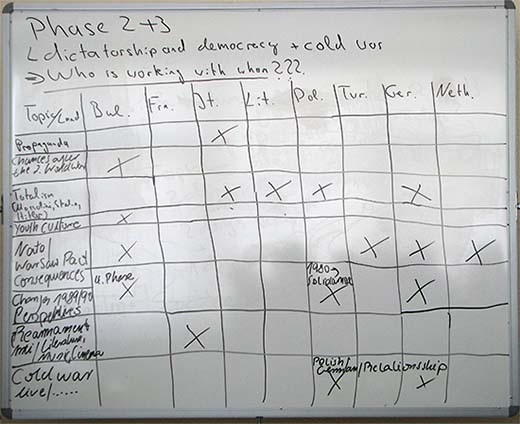 Phase 2+3
dictatorship and democracy + cold war
→ Who is working with whom???
Topic/Land Bul. Fra. It. Lit. Pol. Tur. Ger. Neth.
Propaganda X
Changes after the 2. World War X
Totalism X X X X
Youth Culture X
Nato/ X X X X
Warsaw Pact
Consequences 4. Phase 1980→
Changes 1989/90 X Solidarnosc X X
Perspectives
Rearmament X
Literature,
Music, Cinema
Cold war Polish/German/Relationsship
live/...... X X